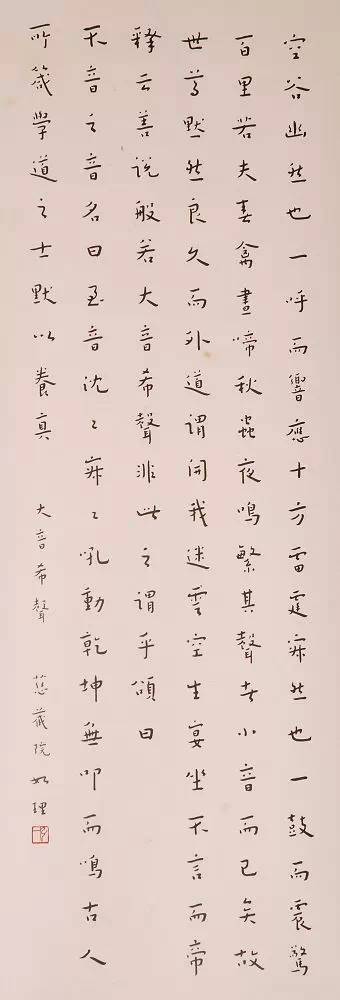 空谷幽然也一呼而響應十方雷霆寂然也一鼓而震驚
百里若夫春禽晝啼秋蟲夜鳴繁其聲者小音而已矣故
世尊默然良久而外道謂開我迷雲空生宴坐不言而帝
釋云善說般若大音希聲非此之謂乎頌曰
不音之音名曰至音沈〻寂〻吼動乾坤無叩而鳴古人
所箴學道之士默以養真
大音希聲 慈蔭院如理